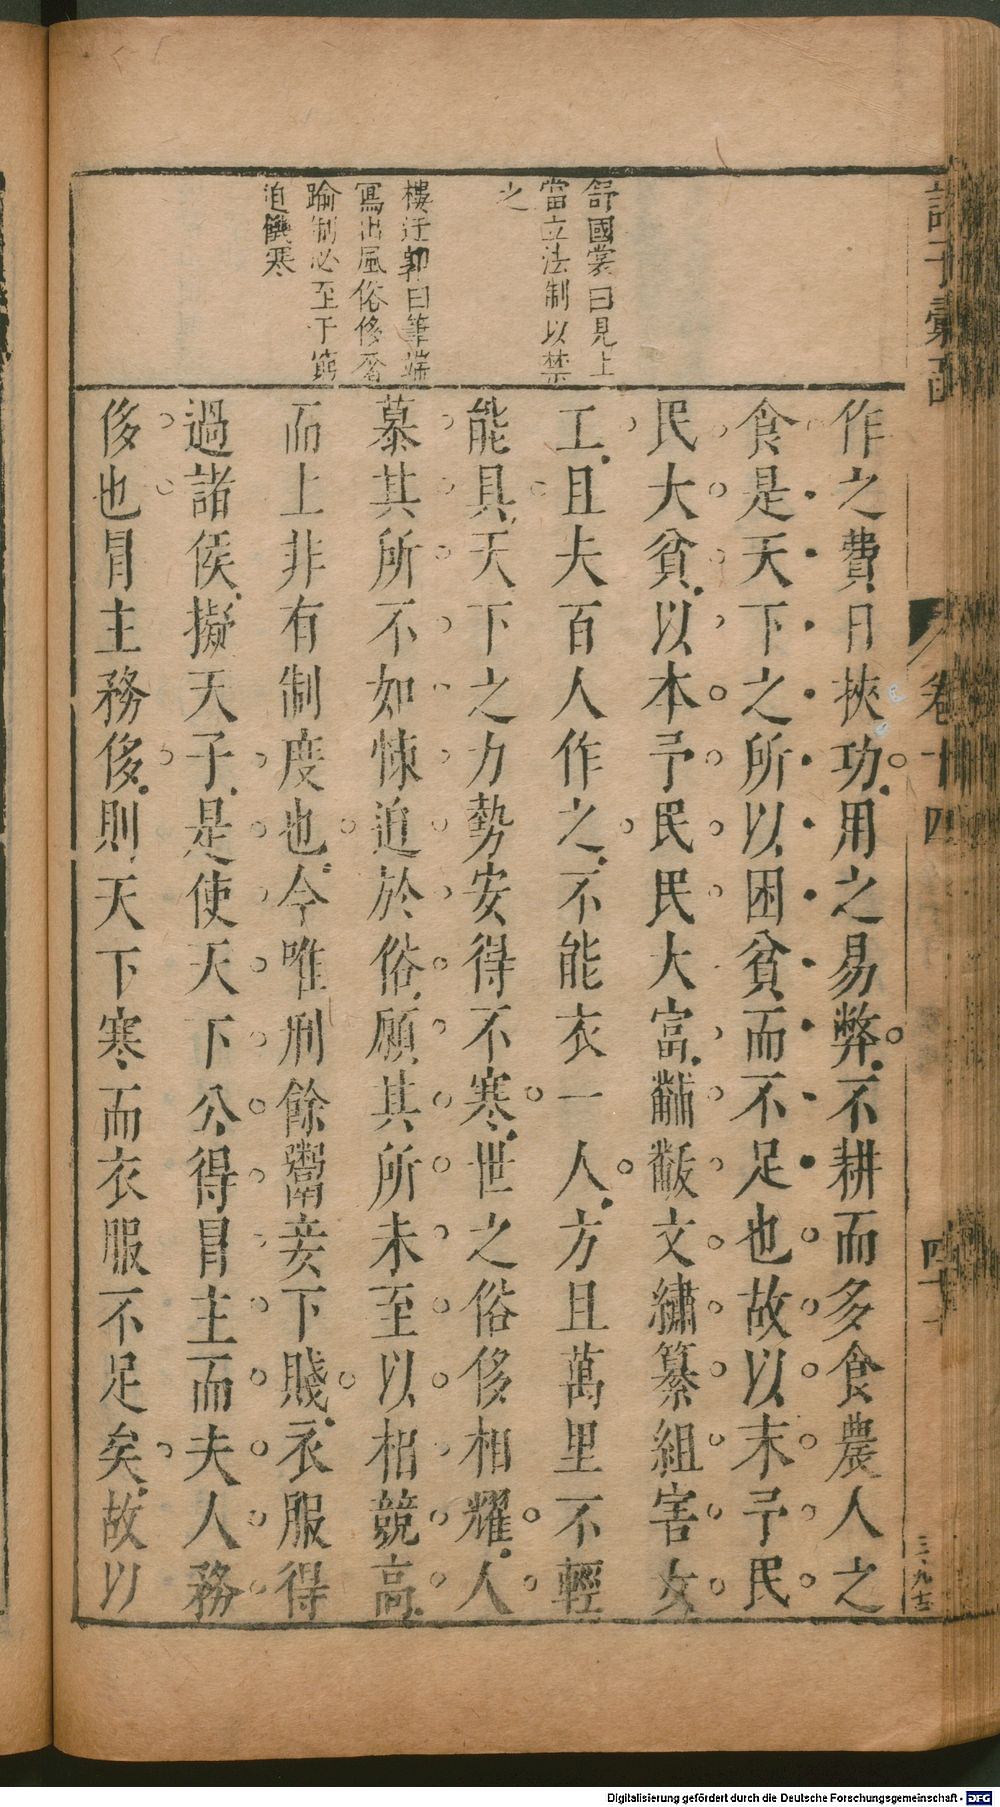 諸子彙函
卷十四
四十
三九七
舒國裳曰見上
當立法制以禁
之
樓迂郭曰筆端
寫出風俗侈奢
踰制必至于窮
迫饑寒
作之費日挾功用之易弊不耕而多食農人之
食是天下之所以困貧而不足也故以末予民
民大貧以本予民民大富黼黻文繡纂組害女
工且夫百人作之不能衣一人方且萬里不輕
能具天下之力勢安得不寒世之俗侈相耀人
慕其所不如悚迫於俗願其所未至以相競高
而上非有制度也今唯刑餘鬻妾下賤衣服得
過諸侯擬天子是使天下公得冒主而夫人務
侈也冒主務侈則天下寒而衣服不足矣故以
Digitalisierung gefördert durch die Deutsche Forschungsgemeinschaft - DFG